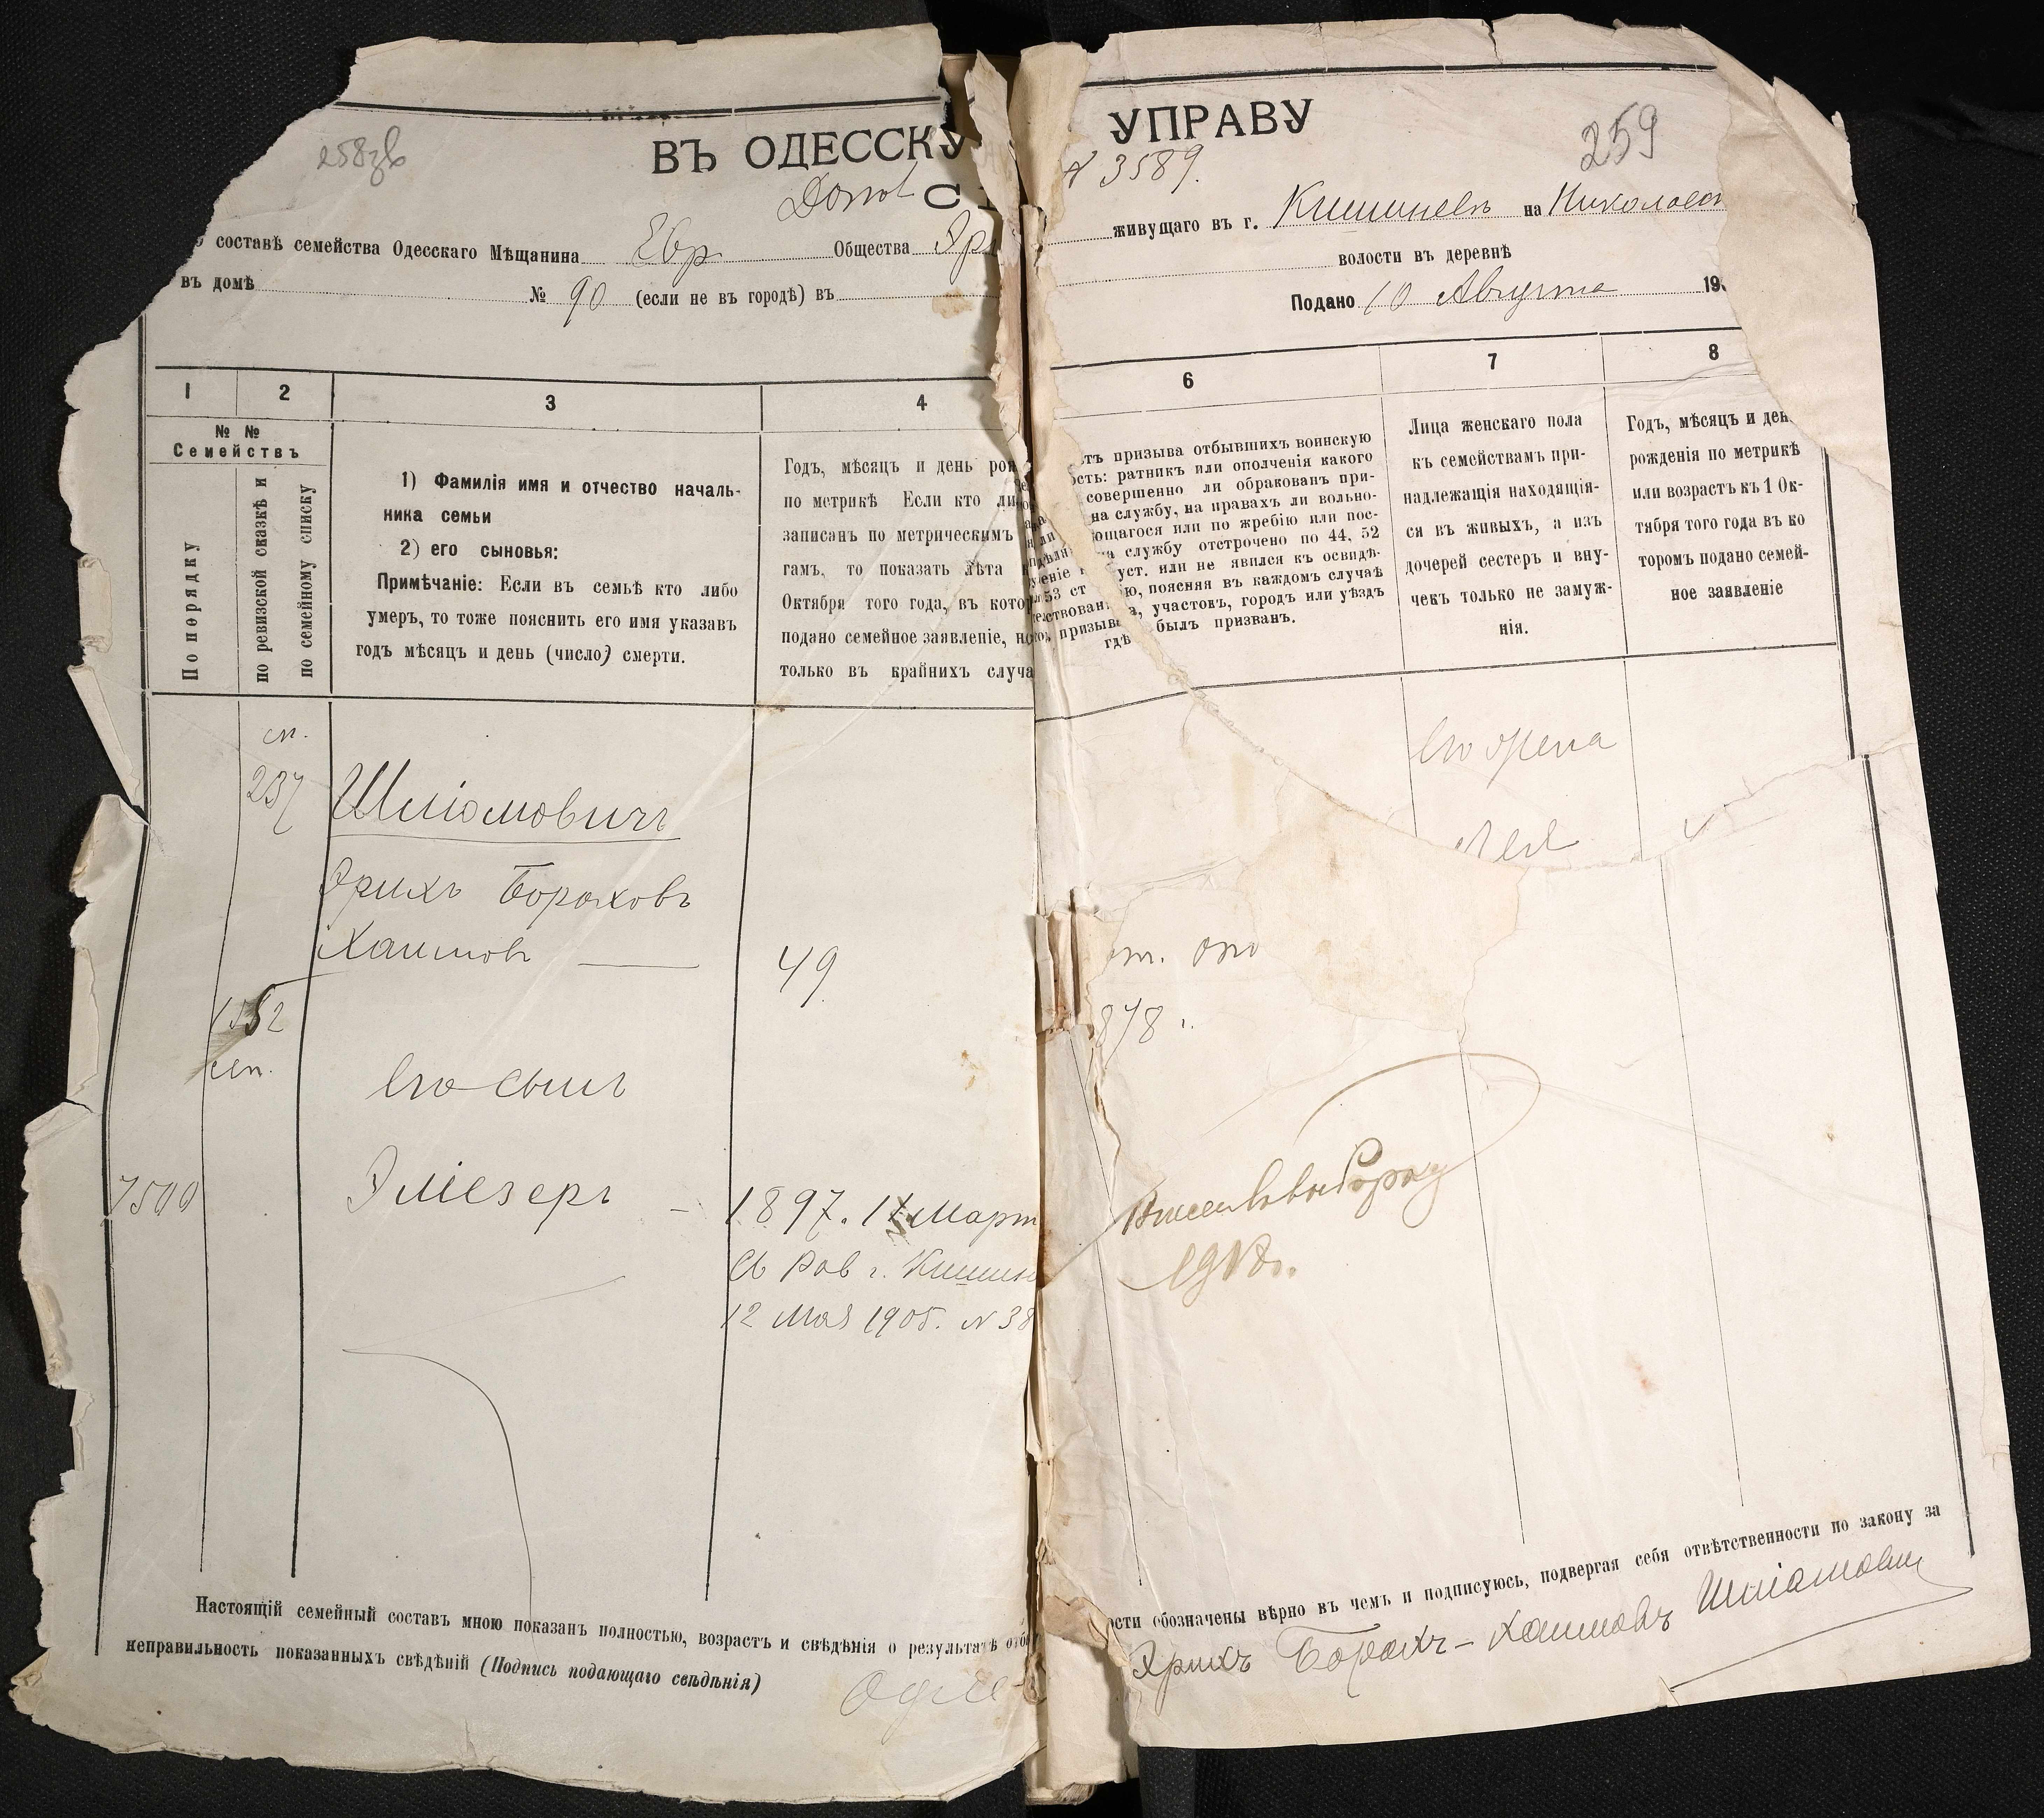 258зв
259
ВЪ ОДЕССКУ УПРАВУ
N 3589.
С
о составѣ семейства Одесскаго Мѣщанина Евр Общества Эри живущаго въ г. Кишиневъ на Николаев
въ домѣ № 90 (если не въ городѣ) въ волости въ деревнѣ
Подано 10 Августа 19
1 2 3 4 6 7 8
№ №
Семействъ
По порядку
по ревизской сказкѣ и
по семейному списку
1) Фамилія имя и отчество началь-
ника семьи
2) его сыновья:
Примѣчаніе: Если въ семьѣ кто либо
умеръ, то тоже пояснить его имя указав
годъ мѣсяцъ и день (число) смерти.
Годъ, мѣсяцъ и день рож
по метрикѣ Если кто либо
записанъ по метрическимъ
гамъ, то показать лѣта
Октября того года, въ кото
подано семейное заявленіе, но
только въ крайнихъ случа
призыва отбывшихъ воинскую
ость: ратникъ или ополченія какого
совершенно ли обракован при-
на службу, на правахъ ли вольно-
ющагося или по жребію или пос-
службу отстрочено по 44, 52
53 ст уст. или не явился къ освидѣ-
ію, поясняя въ каждомъ случаѣ
призыва, участовъ, городъ или уѣздъ
гдѣ былъ призван.
Лица женскаго пола
къ семействамъ при-
надлежащія находящія-
ся въ живыхъ, а изъ
дочерей сестеръ и вну-
чекъ только не замуж-
нія.
Годъ, мѣсяцъ и ден
рожденія по метрикѣ
или возрастъ къ 1 Ок-
тября того года въ ко
торомъ подано семей-
ное заявленіе
сп.
237
Шліомовичъ
Эрихъ Бораховъ
Хаимовъ
49
его жена
Лея
878 г.
1552
сп.
его сынъ
7500
Эліезеръ - 1897. 11 Март
Св Рав г. Кишин
12 Мая 1905. N 38
Настоящій семейный составъ мною показанъ полностью, возрастъ и свѣдѣнія о результатѣ отбы ости обозначены вѣрно въ чемъ и подписуюсь, подвергая себя отвѣтственности по закону за
неправильность показанныхъ свѣдѣній (Подпись подающаго свѣдѣнія)
Эрихъ Борахъ-Хаимовъ Шліомови